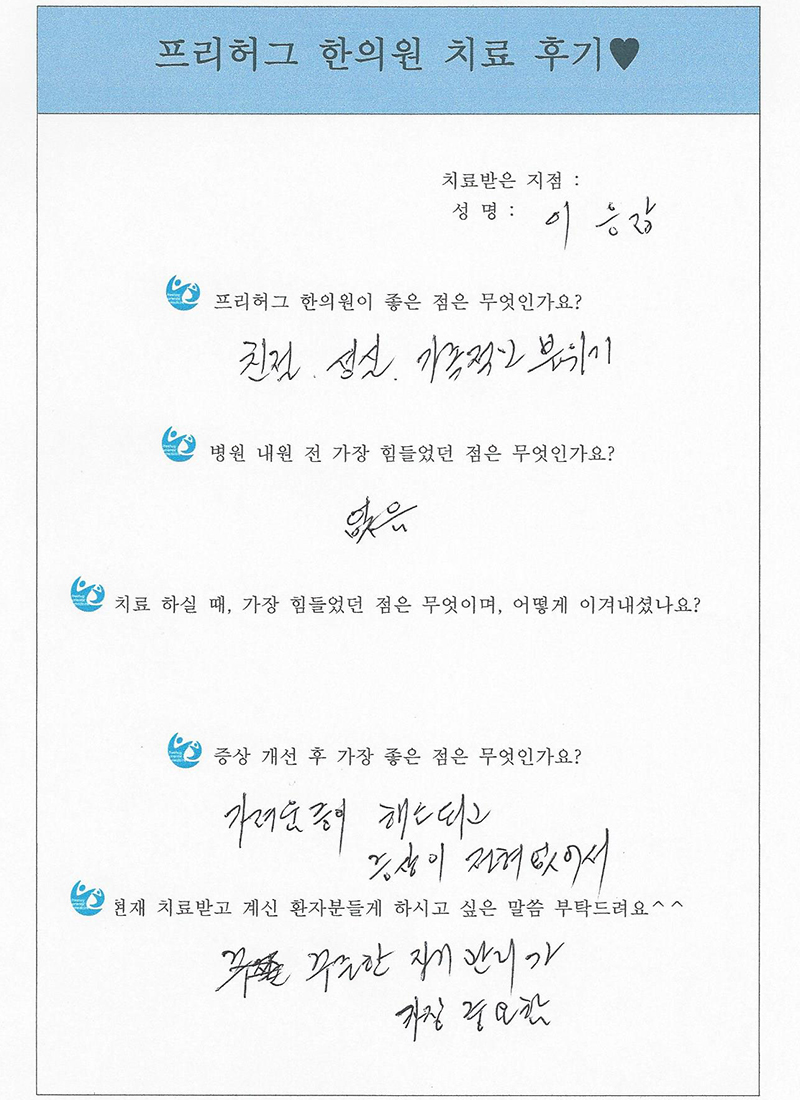 프리허그 한의원 치료 후기♥
치료받은 지점 :
성 명 : 이 응
프리허그 한의원이 좋은 점은 무엇인가요?
친절. 성실. 가족적인 분위기
병원 내원 전 가장 힘들었던 점은 무엇인가요?
없음
치료 하실 때, 가장 힘들었던 점은 무엇이며, 어떻게 이겨내셨나요?
증상 개선 후 가장 좋은 점은 무엇인가요?
가려운증이 해소되고
증상이 전혀없어서
현재 치료받고 계신 환자분들게 하시고 싶은 말씀 부탁드려요^^
꾸준한 자기관리가
가장 중요함